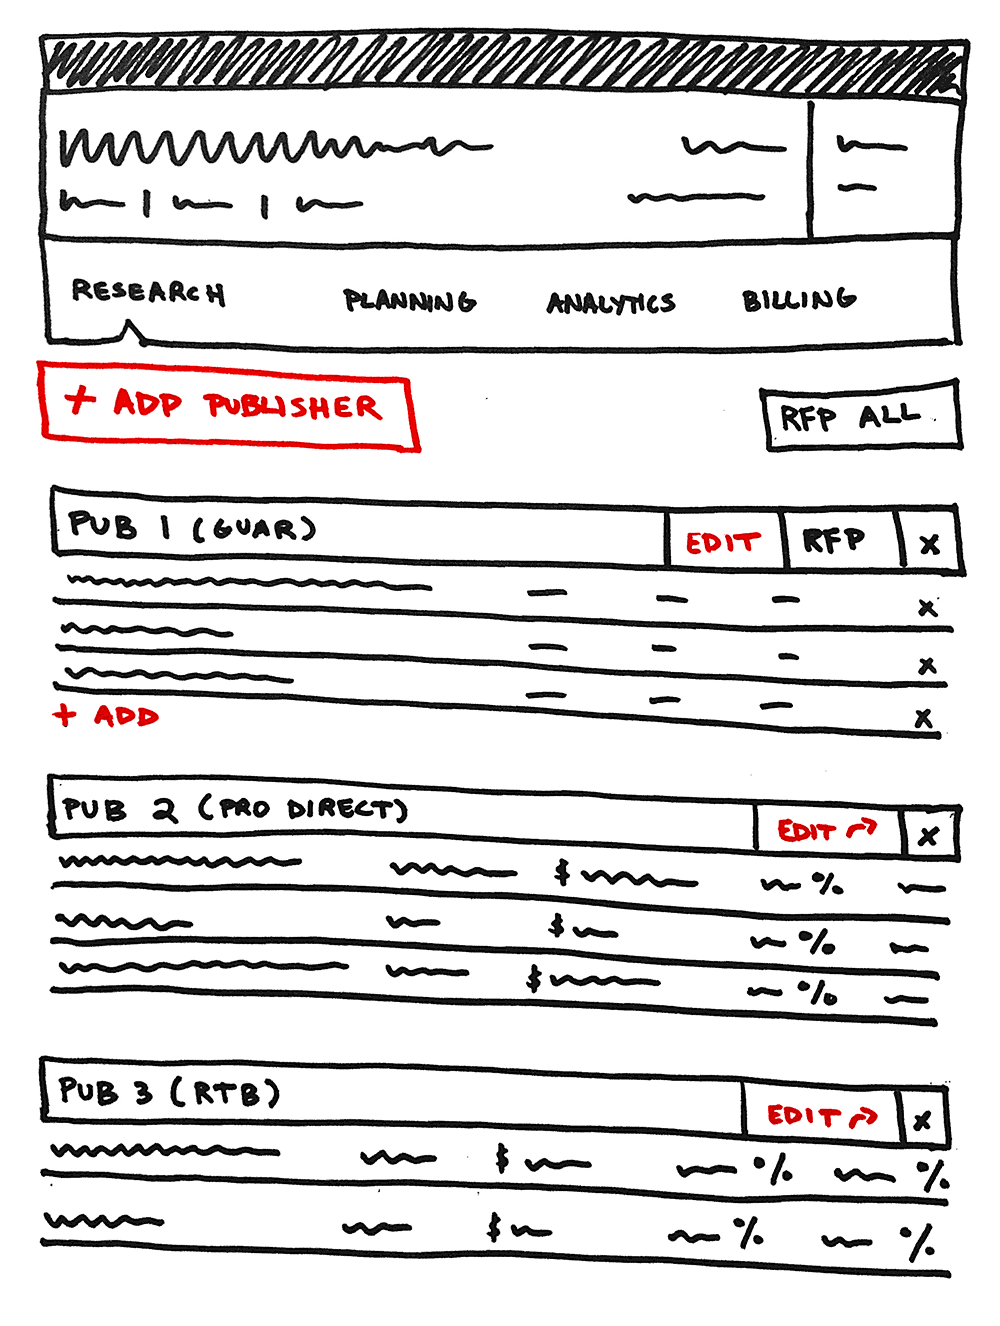 RESEARCH PLANNING ANALYTICS BILLING
+ ADD PUBLISHER RFP ALL
PUB 1 (GUAR) EDIT RFP X
X
X
X
+ ADD
PUB 2 (PRO DIRECT) EDIT X
$ %
$ %
$ %
PUB 3 (RTB) EDIT X
$ % %
$ % %